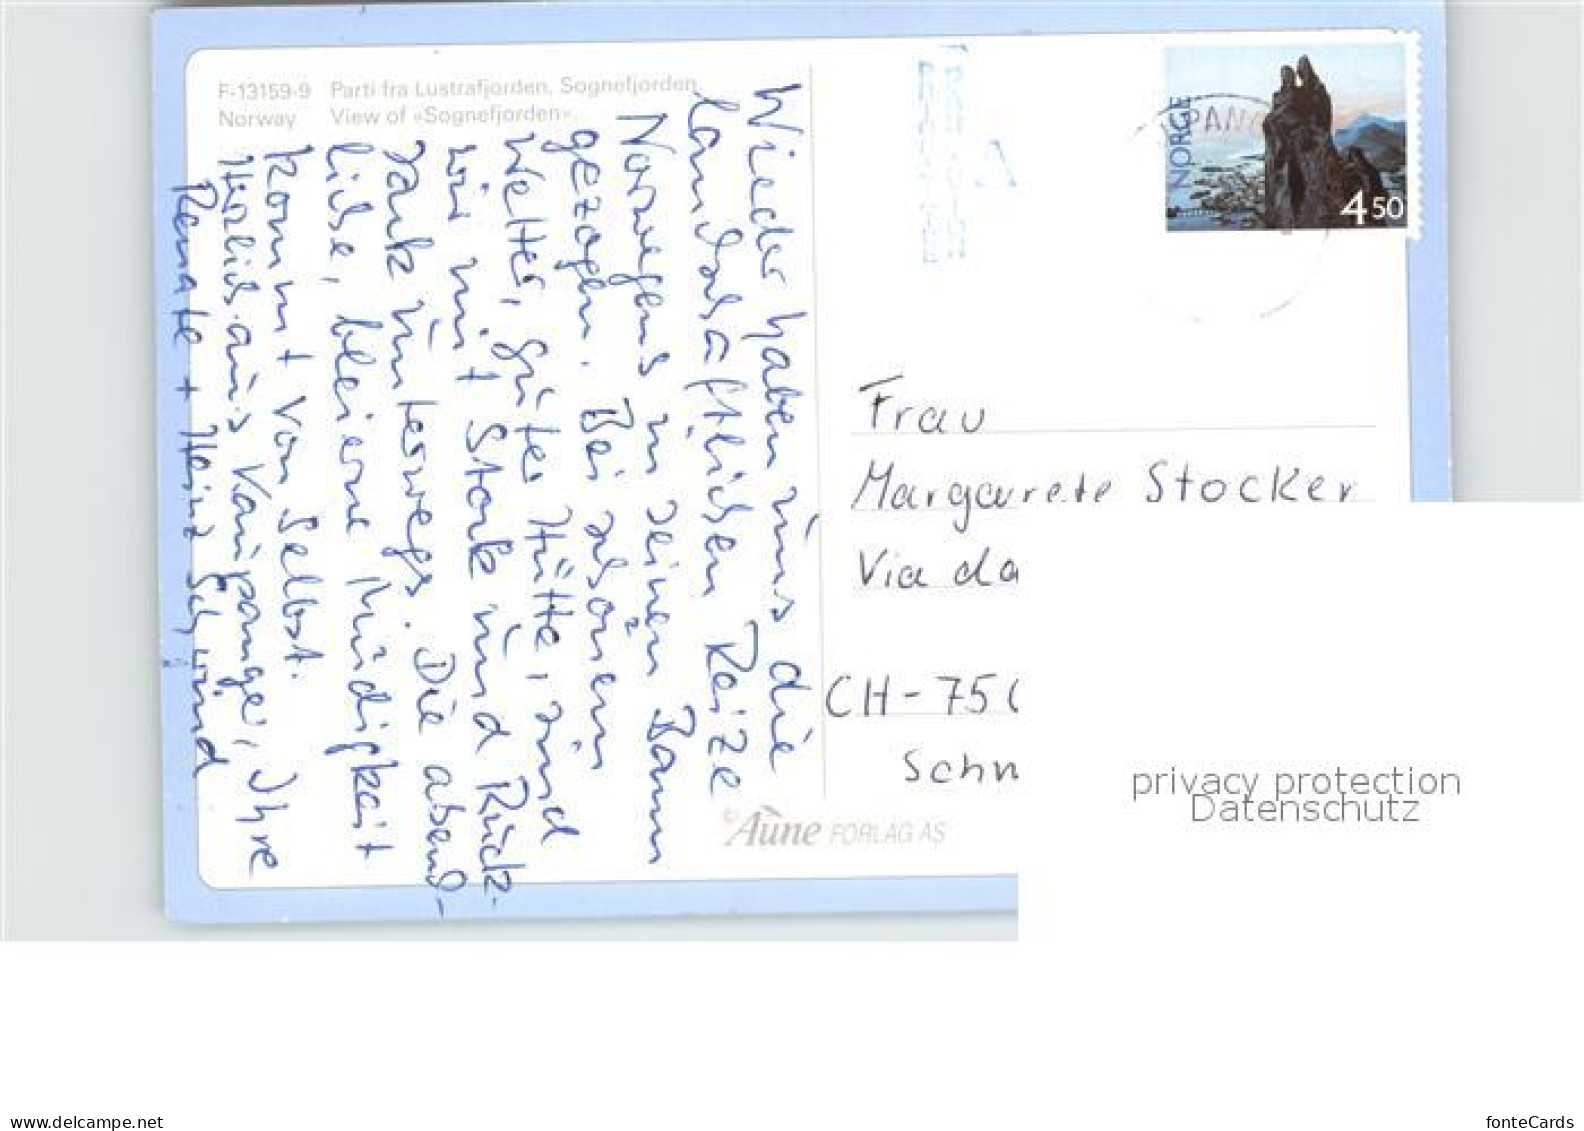 F-13159-9 Parti fra Lustrafjorden, Sognefjorden,
Norway View of «Sognefjorden».
Wieder haben uns die
landschaftlichen Reize
Norwegens in seinen Bann
gezogen. Bei schönem
Wetter, guter Hütte, sind
wir mit Stock und Ruck-
sack unterwegs. Die abend-
liche, bleierne Müdigkeit
kommt von selbst.
Herzlich aus Kaupanger, Ihre
Renate + Heinz Schwind
NORGE
4 50
Frau
Margarete Stocker
Via da
CH-75
Schn
© Aune FORLAG AS
privacy protection
Datenschutz
www.ansichtskartenversand.com
fonteCards